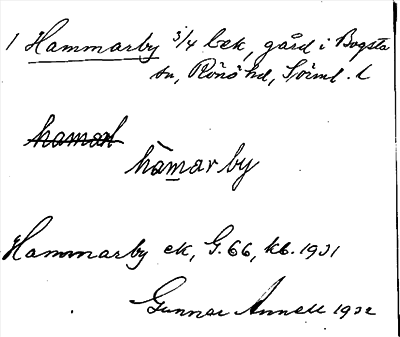 1 Hammarby 3/4 bek, gård i Bogsta
sn, Rönö hd, Sörml. l
hamar by
Hammarby ek, G. 66, kb. 1931
Gunnar Annell 1932